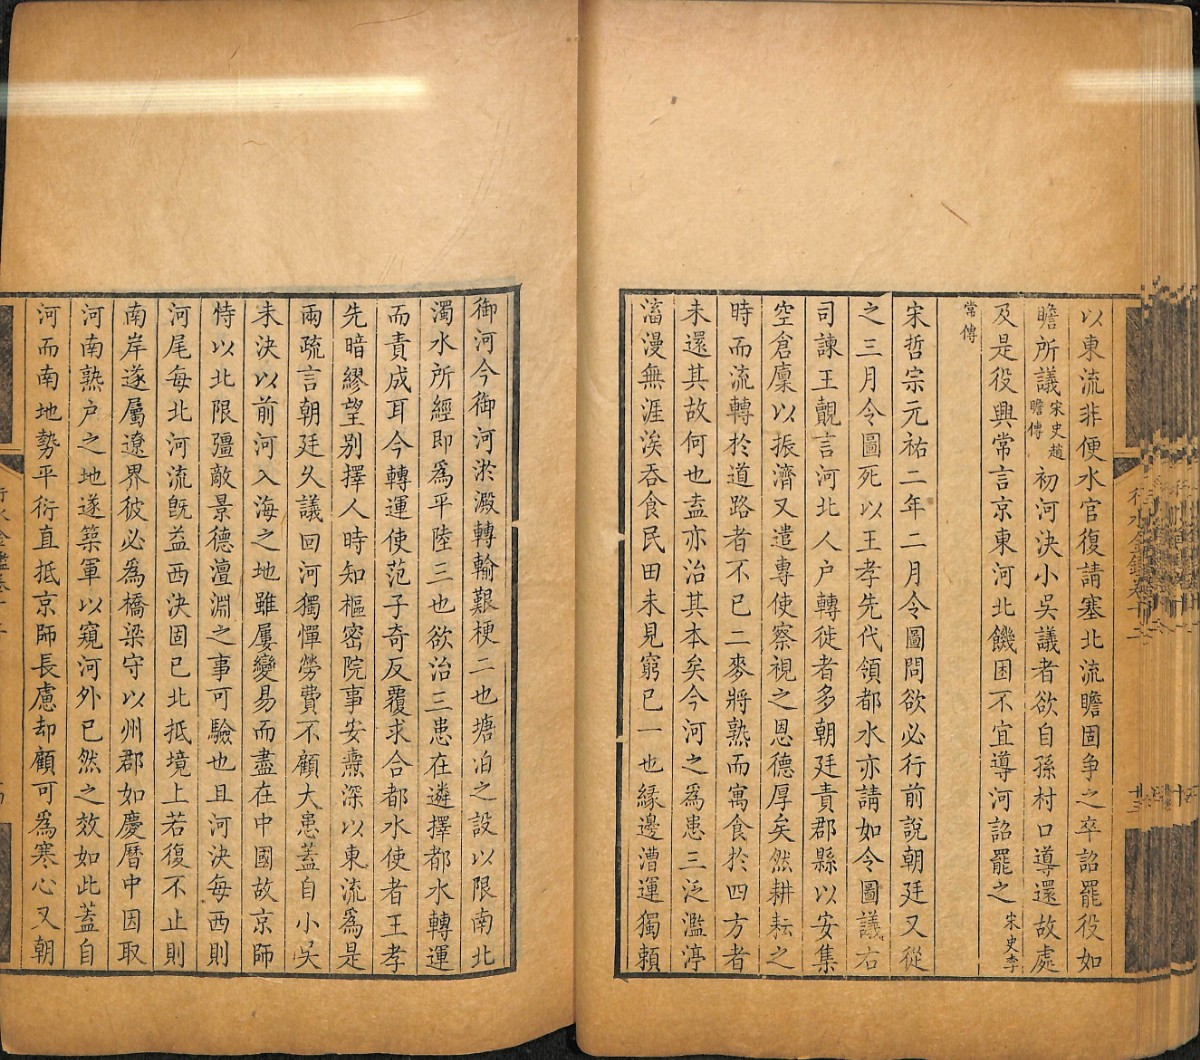 以東流非便水官復請塞北流瞻固争之卒詔罷役如
瞻所議宋史趙瞻傳初河決小吳議者欲自孫村口導還故處
及是役興常言京東河北饑困不宜導河詔罷之宋史李
常傳
宋哲宗元祐二年二月令圖問欲必行前說朝廷又從
之三月令圖死以王孝先代領都水亦請如令圖議右
司諫王覿言河北人户轉徙者多朝廷責郡縣以安集
空倉廩以振濟又遣專使察視之恩德厚矣然耕耘之
時而流轉於道路者不已二麥將熟而寓食於四方者
未還其故何也盍亦治其本矣今河之爲患三泛濫渟
滀漫無涯涘吞食民田未見窮已一也緣邊漕運獨賴
御河今御河淤澱轉輸艱梗二也塘泊之設以限南北
濁水所經即爲平陸三也欲治三患在遴擇都水轉運
而責成耳今轉運使范子奇反覆求合都水使者王孝
先暗繆望别擇人時知樞密院事安燾深以東流爲是
兩疏言朝廷久議回河獨憚勞費不顧大患蓋自小吳
未決以前河入海之地雖屢變易而盡在中國故京師
恃以北限彊敵景德澶淵之事可驗也且河決每西則
河尾每北河流旣益西決固已北抵境上若復不止則
南岸遂屬遼界彼必爲橋梁守以州郡如慶曆中因取
河南熟户之地遂築軍以窺河外已然之效如此蓋自
河而南地勢平衍直抵京師長慮却顧可爲寒心又朝